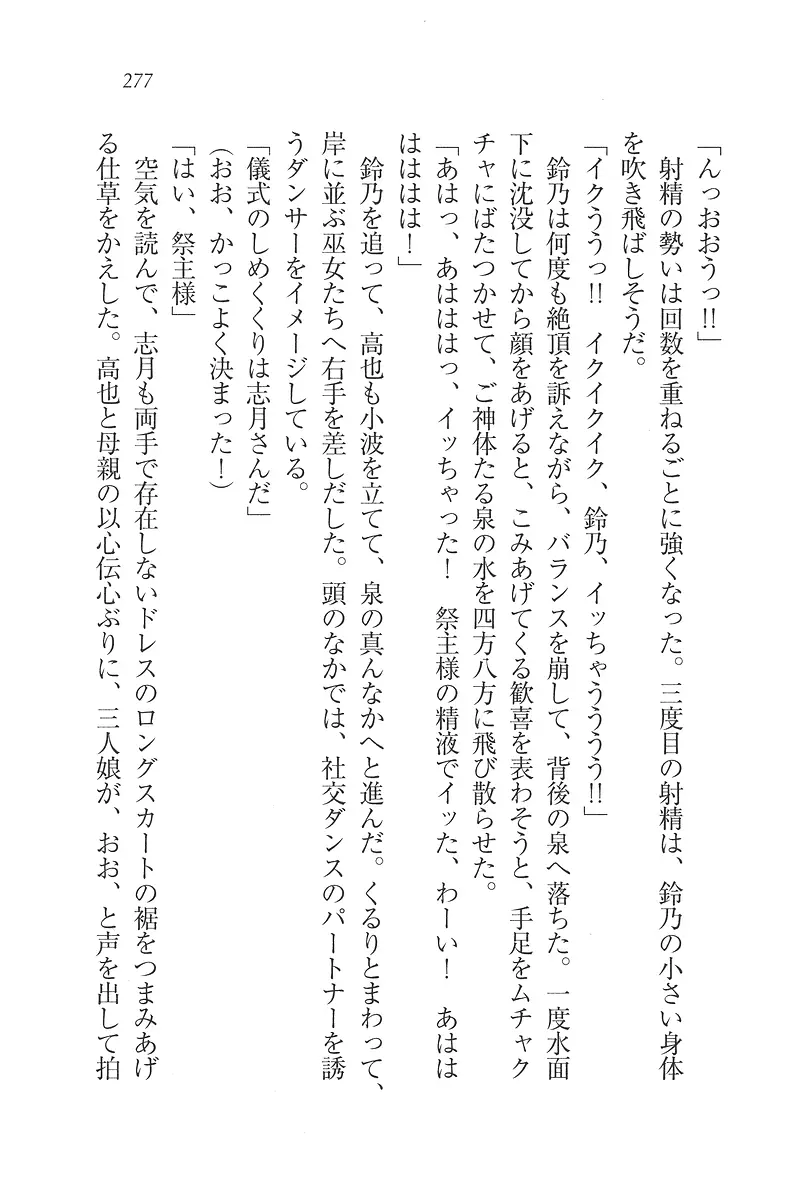 277
「んっおおうっ!!」
　射精の勢いは回数を重ねるごとに強くなった。三度目の射精は、鈴乃の小さい身体
を吹き飛ばしそうだ。
「イクううっ!!　イクイクイク、鈴乃、イッちゃうううう!!」
　鈴乃は何度も絶頂を訴えながら、バランスを崩して、背後の泉へ落ちた。一度水面
下に沈没してから顔をあげると、こみあげてくる歓喜を表わそうと、手足をムチャク
チャにばたつかせて、ご神体たる泉の水を四方八方に飛び散らせた。
「あはっ、あはははっ、イッちゃった！　祭主様の精液でイッた、わーい！　あはは
はははは！」
　鈴乃を追って、高也も小波を立てて、泉の真んなかへと進んだ。くるりとまわって、
岸に並ぶ巫女たちへ右手を差しだした。頭のなかでは、社交ダンスのパートナーを誘
うダンサーをイメージしている。
「儀式のしめくくりは志月さんだ」
（おお、かっこよく決まった！）
「はい、祭主様」
　空気を読んで、志月も両手で存在しないドレスのロングスカートの裾をつまみあげ
る仕草をかえした。高也と母親の以心伝心ぶりに、三人娘が、おお、と声を出して拍